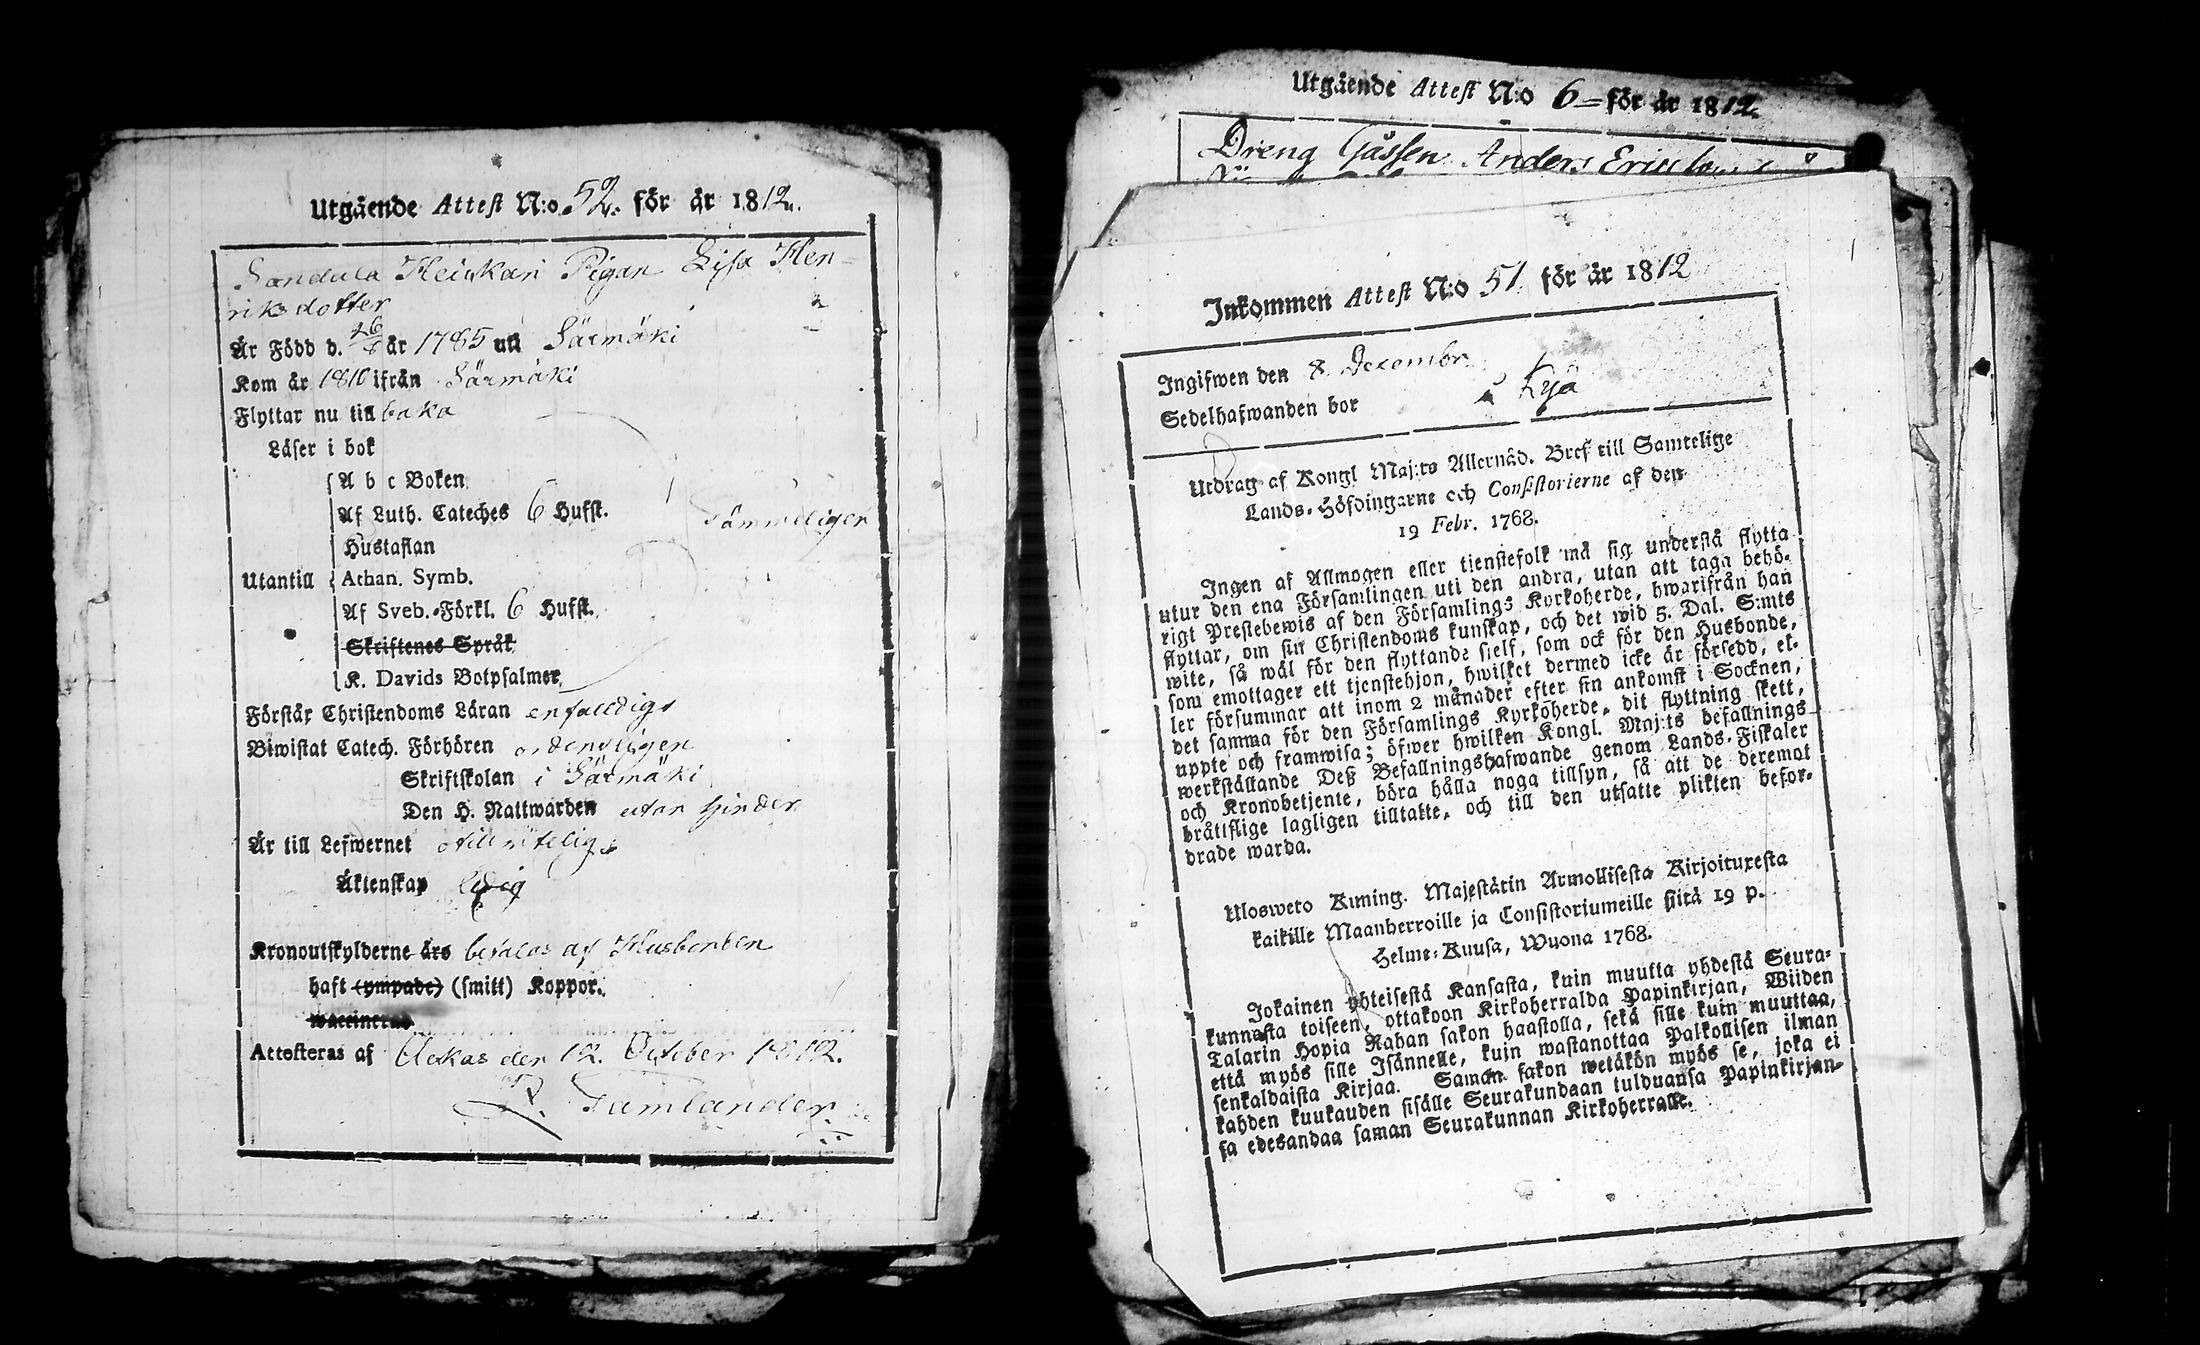 Utgående Attest N:o 52. för år 1812.
Sandula Heickari Pigan Lisa Hen-
riksdotter
Är Född d. 26/8 år 1785 uti Särmäki
Kom år 1810 ifrån Särmäki
Flyttar nu till baka
Läser i bok
A b c Boken
Af Luth. Cateches 6 Hufst.
sämmeligen
Hustaflan
Utantill
Athan. Symb.
Af Sveb. Förkl. 6 Hufst.
Skriftenes Språk
K. Davids Botpsalmer
Förstår Christendoms Läran enfalldigt
Biwistat Catech. Förhören ordenteligen
Skriftskolan i Särmäki
Den H. Nattwarden utan hinder
Är till Lefwernet otillvitelig
Äktenskap ledig
Kronoutskylderne äro betalas af Husbonden
haft (ympade) (smitt) Koppor.
waccinerad
Attesteras af Uckas den 12. October 1812.
Tamlander
Utgående Attest N:o 6 för år 1812.
Dreng Gåssen Anders Ericsson
Inkommen Attest N:o 51 för år 1812
Ingifwen den 8 Decembr.
Sedelhafwanden bor å Kyä
Utdrag af Kongl Maj:ts Allernåd. Bref till Samtelige
Lands-Höfdingarne och Consistorierne af den
19 Febr. 1768.
Ingen af Allmogen eller tjenstefolk må sig understå flytta
utur den ena Församlingen uti den andra, utan att taga behö-
rigt Prestebewis af den Församlings Kyrkoherde, hwarifrån han
flyttar, om sin Christendoms kunskap, och det wid 5. Dal. S:mts
wite, så wäl för den flyttande sjelf, som ock för den Husbonde,
som emottager ett tjenstehjon, hwilket dermed icke är försedd, el-
ler försummar att inom 2 månader efter sin ankomst i Socknen,
det samma för den Församlings Kyrkoherde, dit flyttning skett,
uppte och framwisa; öfwer hwilken Kongl. Maj:ts befallnings
werkställande Deß Befallningshafwande genom Lands-Fiskaler
och Kronobetjente, böra hålla noga tillsyn, så att de deremot
bråttflige lagligen tilltalte, och till den utsatte plikten befor-
drade warda.
Ulosweto Kuning. Majestätin Armollisesta Kirjoituxesta
kaikille Maanherroille ja Consistoriumeille siitä 19 p.
Helme-Kuusa, Wuona 1768.
Jokainen yhteisestä Kansasta, kuin muutta yhdestä Seura-
kunnasta toiseen, ottakoon Kirkoherralda Papinkirjan, Wiiden
Talarin Hopia Rahan sakon haastolla, sekä sille kuin muuttaa,
että myös sille Isännelle, kuin wastanottaa Palkollisen ilman
senkaldaista Kirjaa. Saman sakon wetäkön myös se, joka ei
kahden kuukauden sisälle Seurakundaan tulduansa Papinkirjan-
sa edesandaa saman Seurakunnan Kirkoherralle.